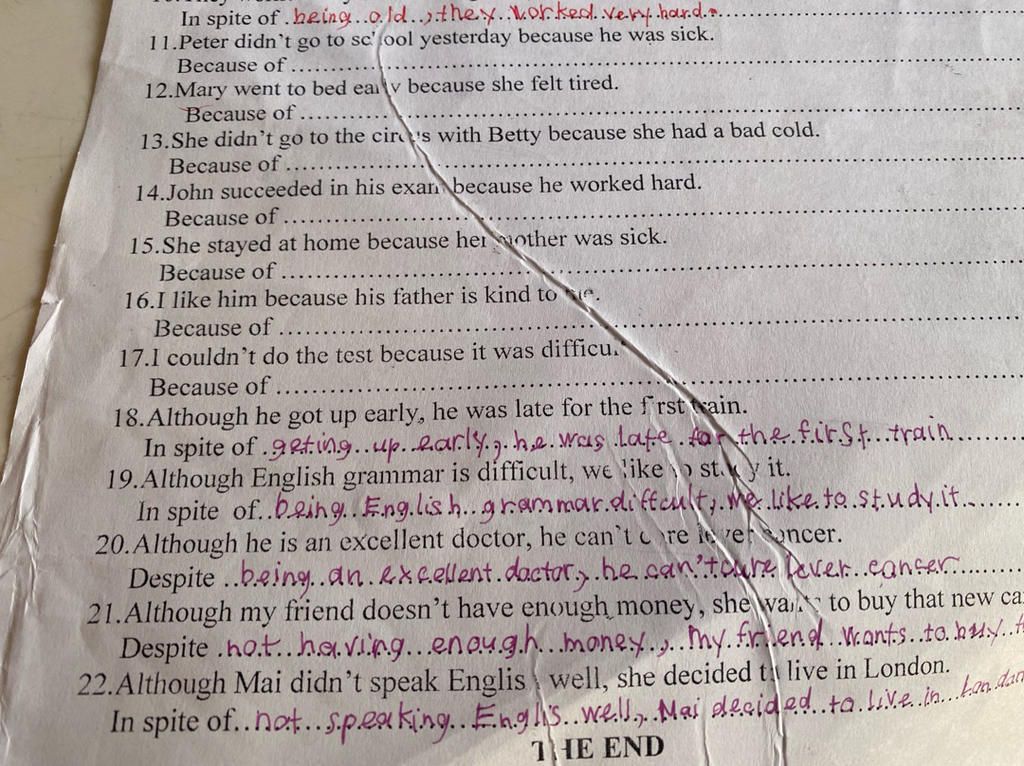 In spite of being old, they worked very hard.
11.Peter didn't go to school yesterday because he was sick.
Because of ............
12.Mary went to bed early because she felt tired.
Because of ............
13.She didn't go to the circus with Betty because she had a bad cold.
Because of ............
14.John succeeded in his exam because he worked hard.
Because of ............
15.She stayed at home because her mother was sick.
Because of ............
16.I like him because his father is kind to me.
Because of ............
17.I couldn't do the test because it was difficult
Because of ............
18.Although he got up early, he was late for the first train.
In spite of geting up early, he was late for the first train
19.Although English grammar is difficult, we like to study it.
In spite of being English grammar diffcult, we like to study it.
20.Although he is an excellent doctor, he can't cure lever cancer.
Despite being an excellent doctor, he can't cure lever canser
21.Although my friend doesn't have enough money, she wants to buy that new ca
Despite not having enough money, my friend wants to buy
22.Although Mai didn't speak English well, she decided to live in London.
In spite of not speaking Englis well, Mai decided to live in London
THE END